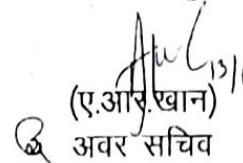 13/
(ए.आर.खान)
अवर सचिव